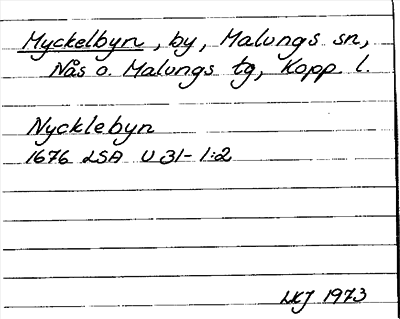 Myckelbyn, by, Malungs sn,
Nås o. Malungs tg, Kopp l.
Nycklebyn
1676 LSA U 31-1:2
LKJ 1973